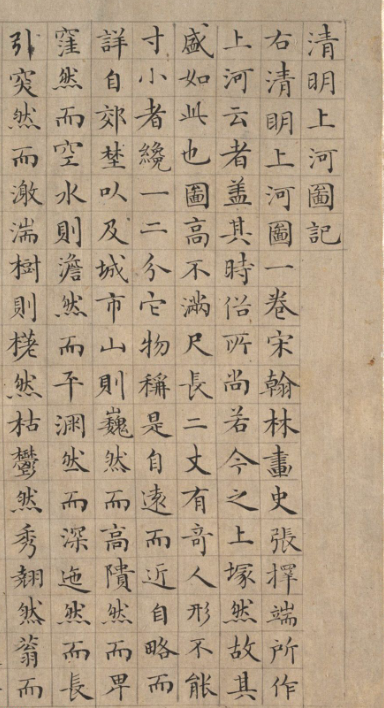 清明上河圖記
右清明上河圖一卷宋翰林畫史張擇端所作
上河云者蓋其時俗所尚若今之上塚然故其
盛如此也圖高不滿尺長二丈有奇人形不能
寸小者纔一二分它物稱是自遠而近自略而
詳自郊埜以及城市山則巍然而高隤然而卑
窪然而空水則澹然而平渊然而深迤然而長
引突然而激湍樹則槎然枯鬱然秀翹然蓊而